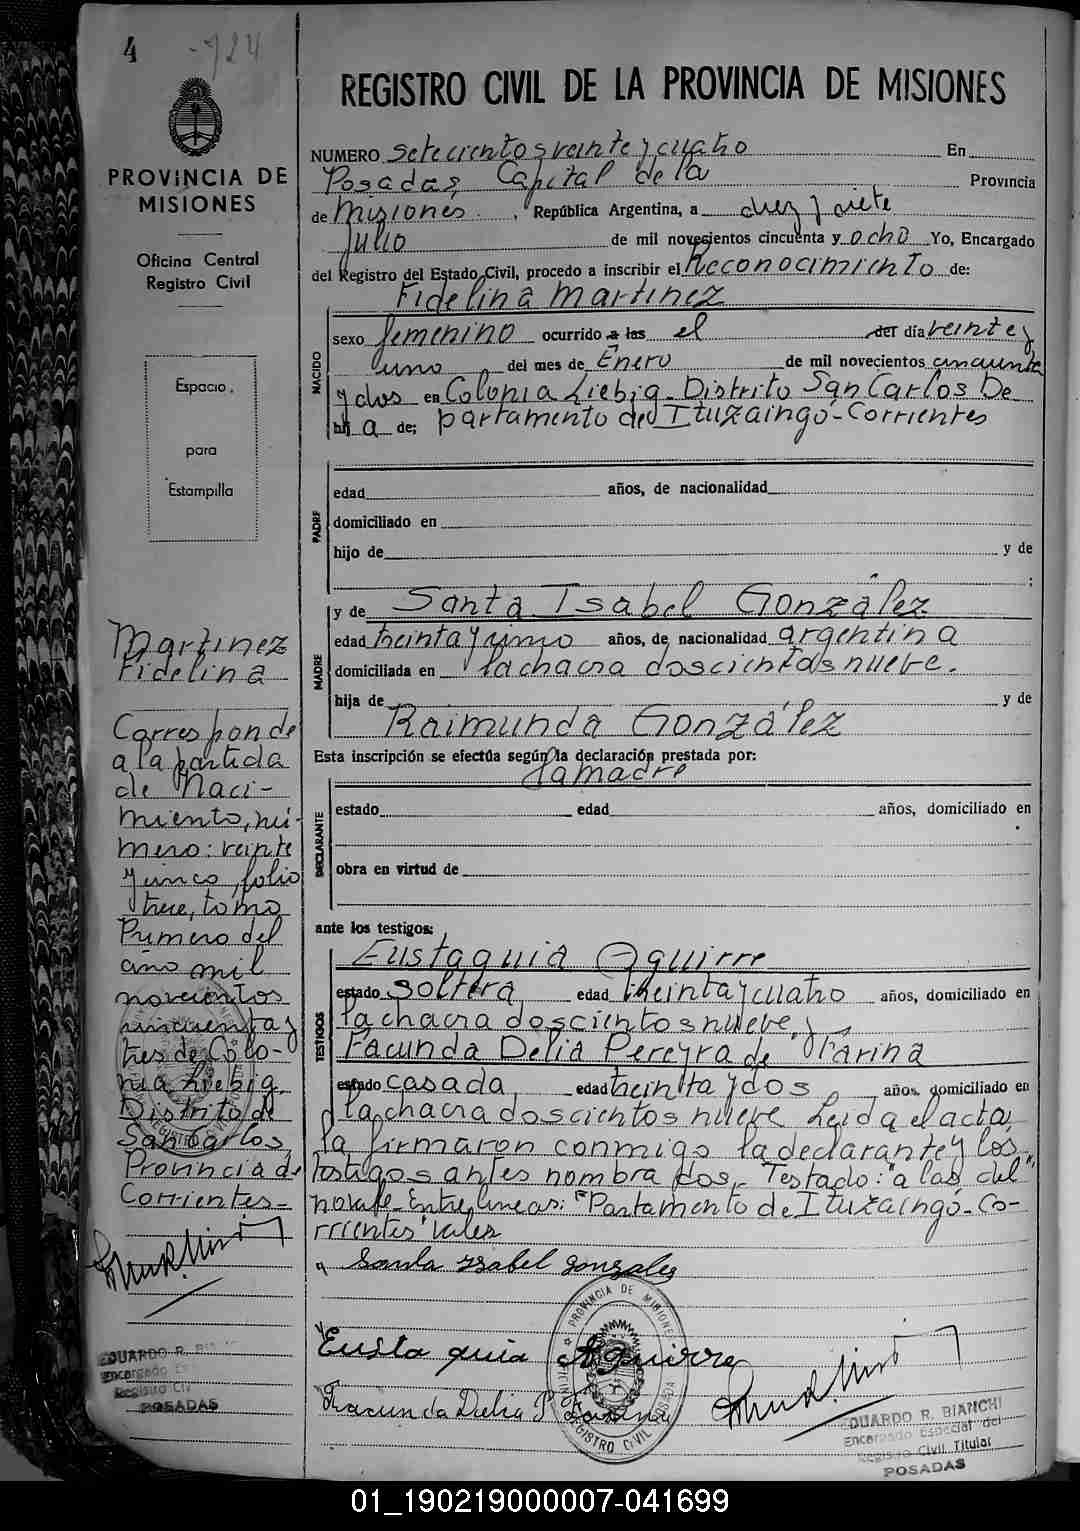 4
724
PROVINCIA DE
MISIONES
Oficina Central
Registro Civil
Espacio
para
Estampilla
Martinez
Fidelina
Corresponde
a la partida
de Naci-
miento, nú-
mero: veinte
y unco, folio
trece, tomo
Primero del
año mil
novecientos
cincuenta y
tres de Colo-
nia Liebig
Distrito de
San Carlos,
Provincia de
Corrientes
EDUARDO R. BI
Encargado Es
Registro Civ
POSADAS
REGISTRO CIVIL DE LA PROVINCIA DE MISIONES
NUMERO setecientos veinte y cuatro En
Posadas, Capital de la Provincia
de Misiones, República Argentina, a diez y siete
Julio de mil novecientos cincuenta y ocho Yo, Encargado
del Registro del Estado Civil, procedo a inscribir el Reconocimiento de:
Fidelina Martinez
NACIDO
sexo femenino ocurrido a las el del día veinte y
uno del mes de Enero de mil novecientos cincuenta
y dos en Colonia Liebig Distrito San Carlos De
hij a de; partamento de Ituzaingó-Corrientes
PADRE
edad años, de nacionalidad
domiciliado en
hijo de y de
:
MADRE
y de Santa Isabel González
edad treinta y uno años, de nacionalidad argentina
domiciliada en la chacra doscientos nueve.
hija de y de
Raimunda González
Esta inscripción se efectúa según la declaración prestada por:
la madre
DECLARANTE
estado edad años, domiciliado en
obra en virtud de
ante los testigos:
TESTIGOS
Eustaquia Aguirre
estado soltera, edad treinta y cuatro años, domiciliado en
la chacra doscientos nueve, y
Facunda Delia Pereyra de Farina
estado casada edad treinta y dos años, domiciliado en
la chacra doscientos nueve Leida el acta,
la firmaron conmigo la declarante y los
testigos antes nombrados. Testado: "a las del"
no vale-Entre lineas: "Partamento de Ituzaingó-Co-
rrientes" vale.
Santa Ysabel Gonzales
Eustaquia Aguirre
Facunda Delia P Farina
PROVINCIA DE MISIONES
REGISTRO CIVIL POSADAS
EDUARDO R. BIANCHI
Encargado Especial del
Registro Civil Titular
POSADAS
01_190219000007-041699